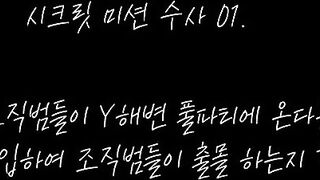 시크릿 미션 수사 01.
조직범들이 Y해변 풀파티에 온다
입하여 조직범들이 출몰 하는지